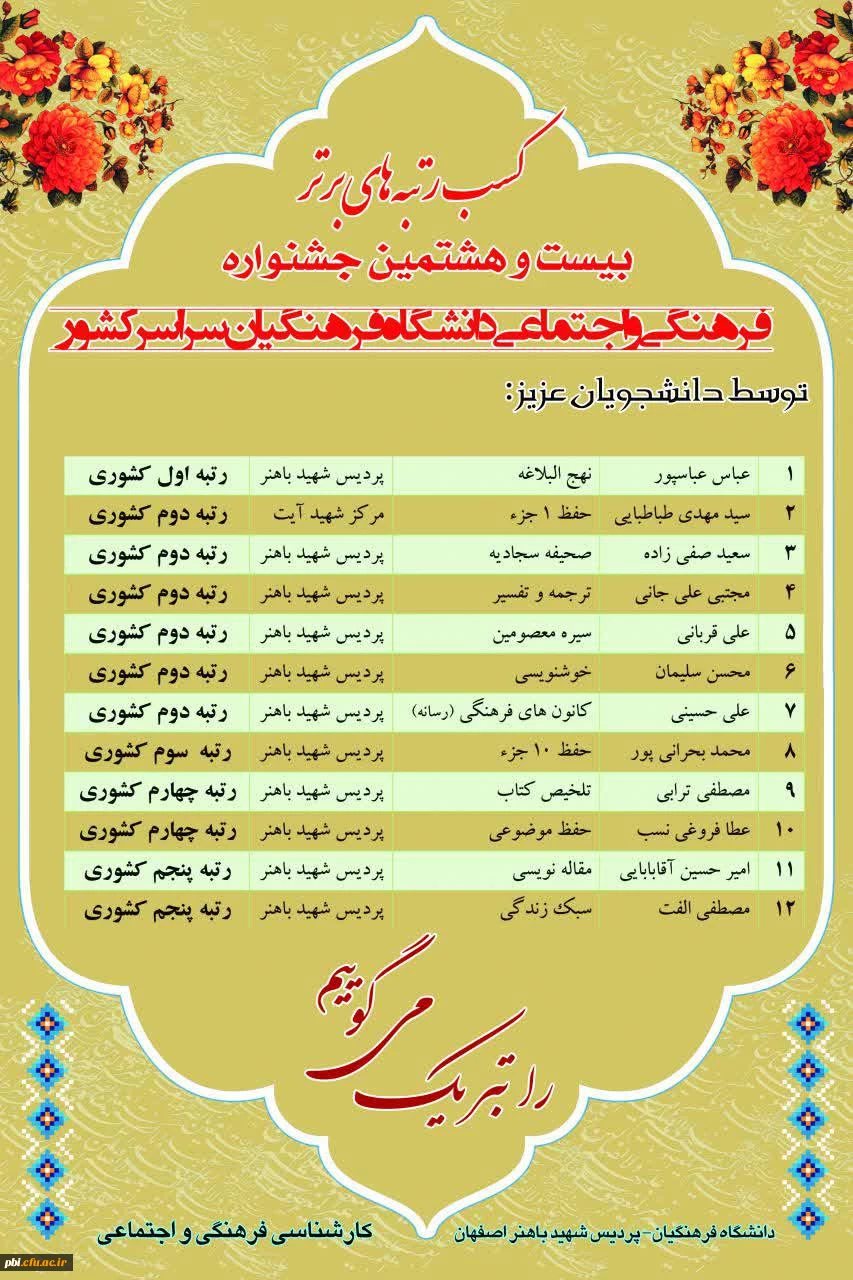 کسب رتبه های برتر
بیست و هشتمین جشنواره
فرهنگی و اجتماعی دانشگاه فرهنگیان سراسر کشور
توسط دانشجویان عزیز:
۱ عباس عباسپور نهج البلاغه پردیس شهید باهنر رتبه اول کشوری
۲ سید مهدی طباطبایی حفظ ۱ جزء مرکز شهید آیت رتبه دوم کشوری
۳ سعید صفی زاده صحیفه سجادیه پردیس شهید باهنر رتبه دوم کشوری
۴ مجتبی علی جانی ترجمه و تفسیر پردیس شهید باهنر رتبه دوم کشوری
۵ علی قربانی سیره معصومین پردیس شهید باهنر رتبه دوم کشوری
۶ محسن سلیمان خوشنویسی پردیس شهید باهنر رتبه دوم کشوری
۷ علی حسینی کانون های فرهنگی (رسانه) پردیس شهید باهنر رتبه دوم کشوری
۸ محمد بحرانی پور حفظ ۱۰ جزء پردیس شهید باهنر رتبه سوم کشوری
۹ مصطفی ترابی تلخیص کتاب پردیس شهید باهنر رتبه چهارم کشوری
۱۰ عطا فروغی نسب حفظ موضوعی پردیس شهید باهنر رتبه چهارم کشوری
۱۱ امیر حسین آقابابایی مقاله نویسی پردیس شهید باهنر رتبه پنجم کشوری
۱۲ مصطفی الفت سبک زندگی پردیس شهید باهنر رتبه پنجم کشوری
را تبریک می گوییم
دانشگاه فرهنگیان-پردیس شهید باهنر اصفهان کارشناسی فرهنگی و اجتماعی
pbi.cfu.ac.ir